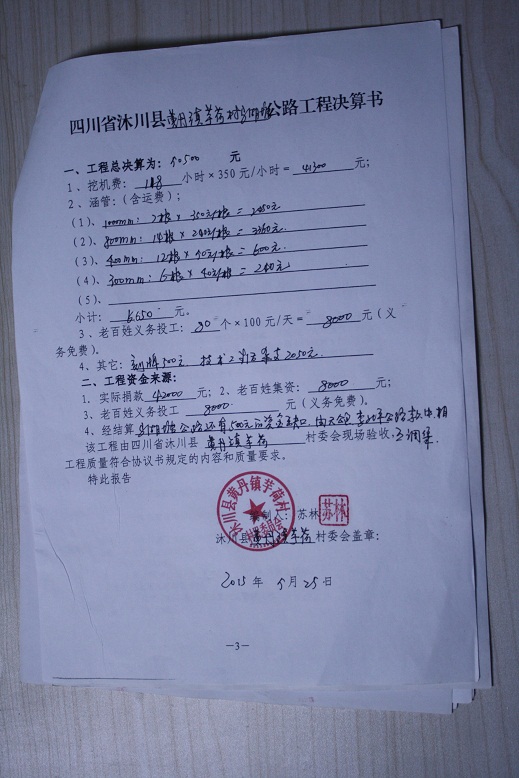 四川省沐川县黄丹镇芋荷村 公路工程决算书
一、工程总决算为:50500 元
1、挖机费:118 小时×350元/小时= 41300 元;
2、涵管:(含运费);
(1)、1000mm:7根×350元/根=2450元
(2)、800mm:14根×240元/根=3360元.
(3)、400mm:12根×50元/根=600元.
(4)、300mm:6根×40元/根=240元
(5)、
小计: 6650 元。
3、老百姓义务投工: 80 个×100元/天= 8000 元(义
务免费)。
4、其它: 刻牌500元. 技术 2050元.
二、工程资金来源:
1. 实际捐款 42000 元;2、老百姓集资: 8000 元;
3、老百姓义务投工 8000 元(义务免费)。
4、经结算 公路还有500元 资金缺口,由 公路款中相
该工程由四川省沐川县 黄丹镇芋荷 村委会现场验收,互调集.
工程质量符合协议书规定的内容和质量要求。
特此报告
沐川县黄丹镇芋荷村
村民委员会
编制人:苏林 苏林
沐川县黄丹镇芋荷村委会盖章:
2015年 5月25日
—3—